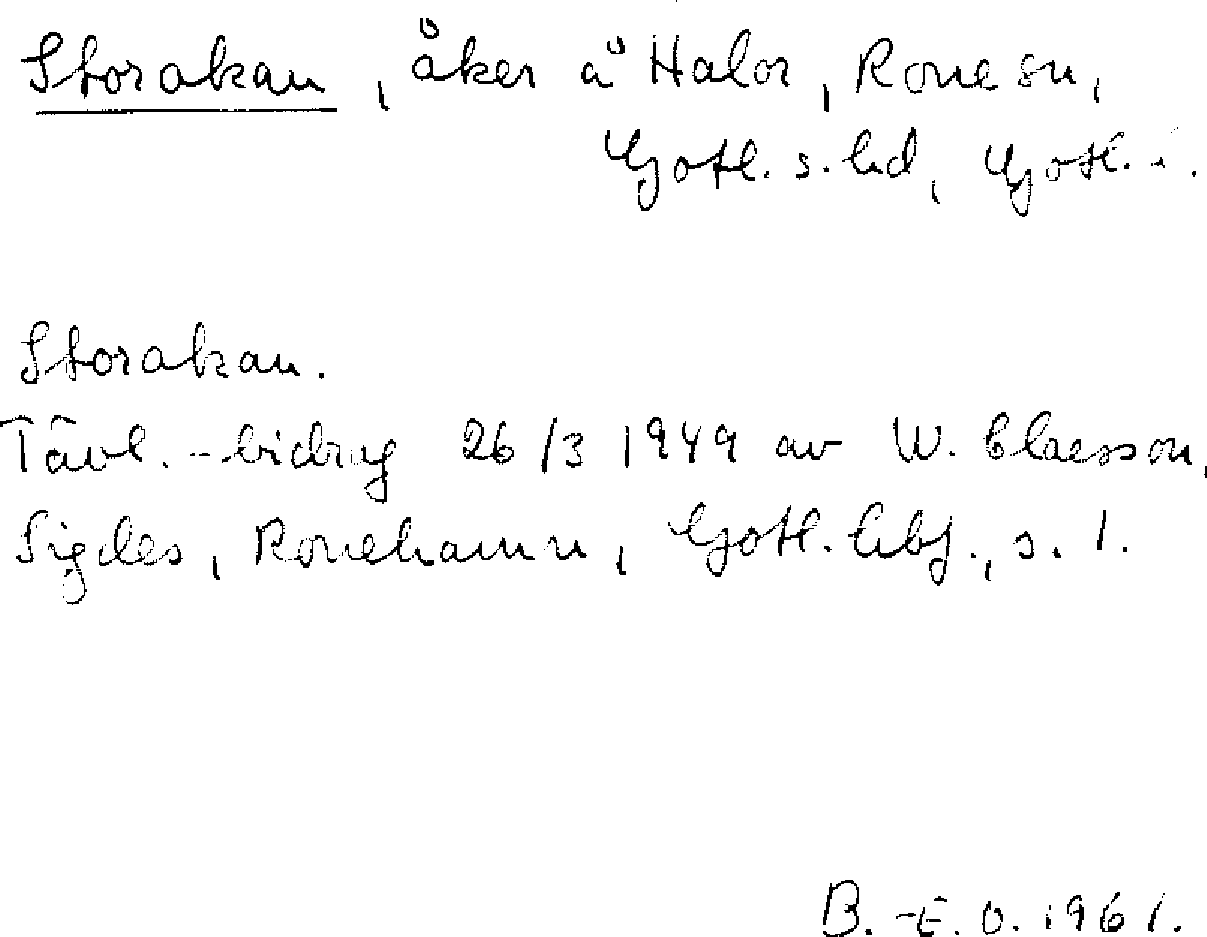 Storakau, åker å Halor, Rone sn,
Gotl. s. hd, Gotl. .
Storakau.
Tävl.-bidrag 26/3 1949 av W. Claesson,
Sigdes, Ronehamn, Gotl. s. 1.
B.-E. O. 1961.